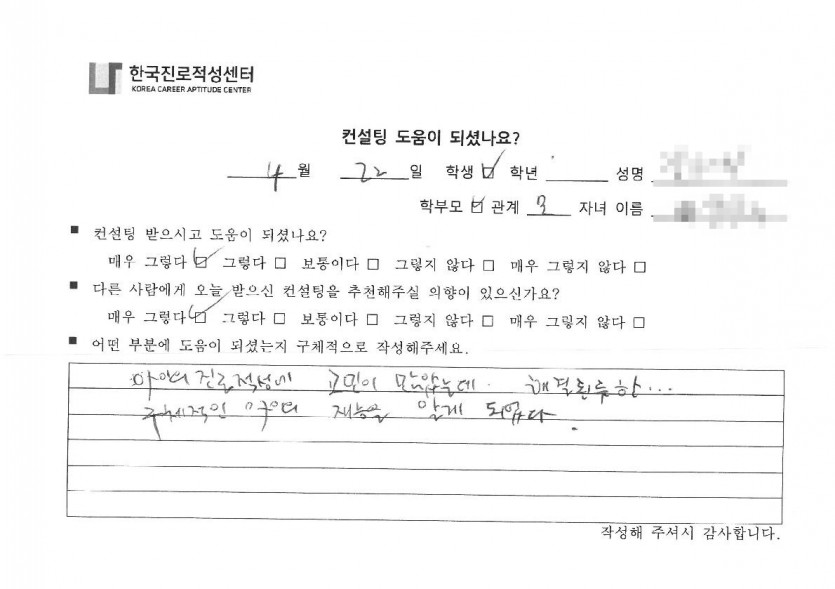 한국진로적성센터
KOREA CAREER APTITUDE CENTER
컨설팅 도움이 되셨나요?
4 월 22 일 학생 ☑ 학년 성명
학부모 ☑ 관계 모 자녀 이름
■ 컨설팅 받으시고 도움이 되셨나요?
매우 그렇다 ☑ 그렇다 □ 보통이다 □ 그렇지 않다 □ 매우 그렇지 않다 □
■ 다른 사람에게 오늘 받으신 컨설팅을 추천해주실 의향이 있으신가요?
매우 그렇다 ☑ 그렇다 □ 보통이다 □ 그렇지 않다 □ 매우 그렇지 않다 □
■ 어떤 부분에 도움이 되셨는지 구체적으로 작성해주세요.
아이의 진로적성에 고민이 많았는데 해결된듯한...
구체적인 재능을 알게 되었다.
작성해 주셔서 감사합니다.